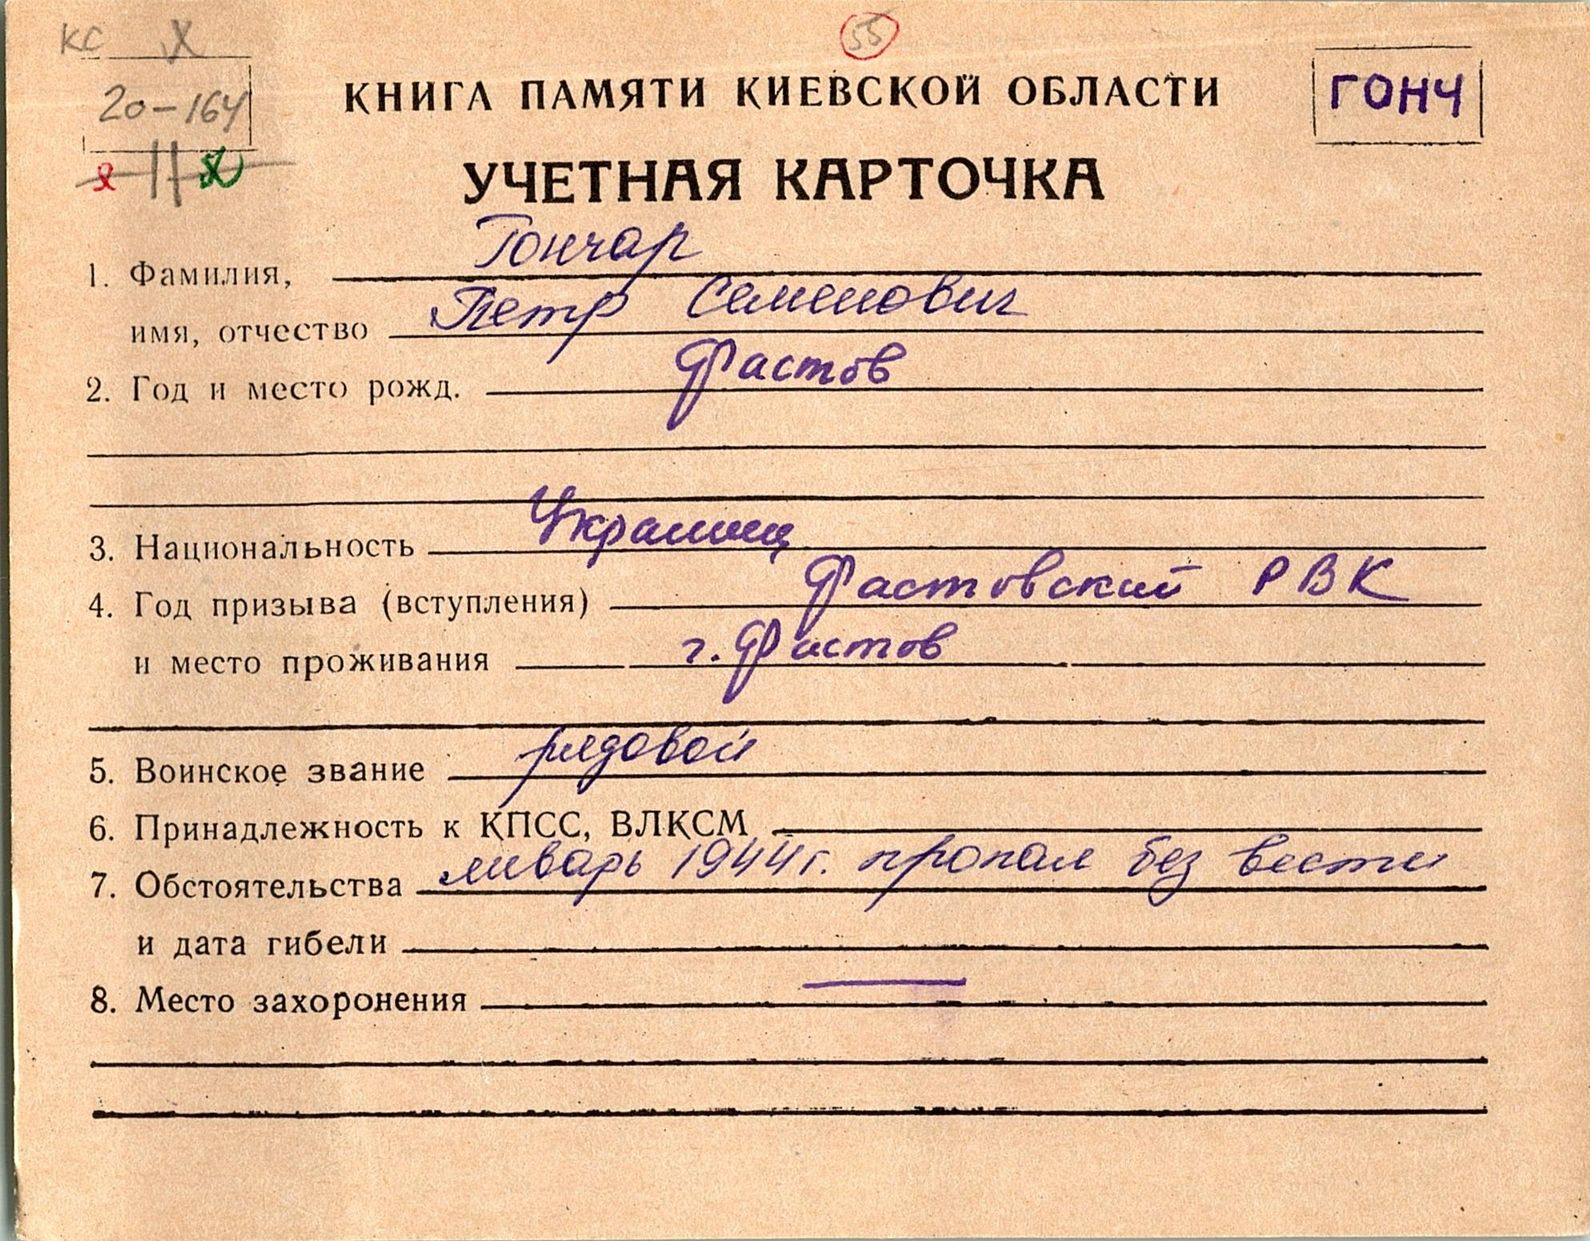 КС X
55
20-164
КНИГА ПАМЯТИ КИЕВСКОЙ ОБЛАСТИ
ГОНЧ
УЧЕТНАЯ КАРТОЧКА
1. Фамилия, Гончар
имя, отчество Петр Семенович
2. Год и место рожд. Фастов
3. Национальность Украинец
4. Год призыва (вступления) Фастовский РВК
и место проживания г. Фастов
5. Воинское звание рядовой
6. Принадлежность к КПСС, ВЛКСМ
7. Обстоятельства январь 1944 г. пропал без вести
и дата гибели
8. Место захоронения —